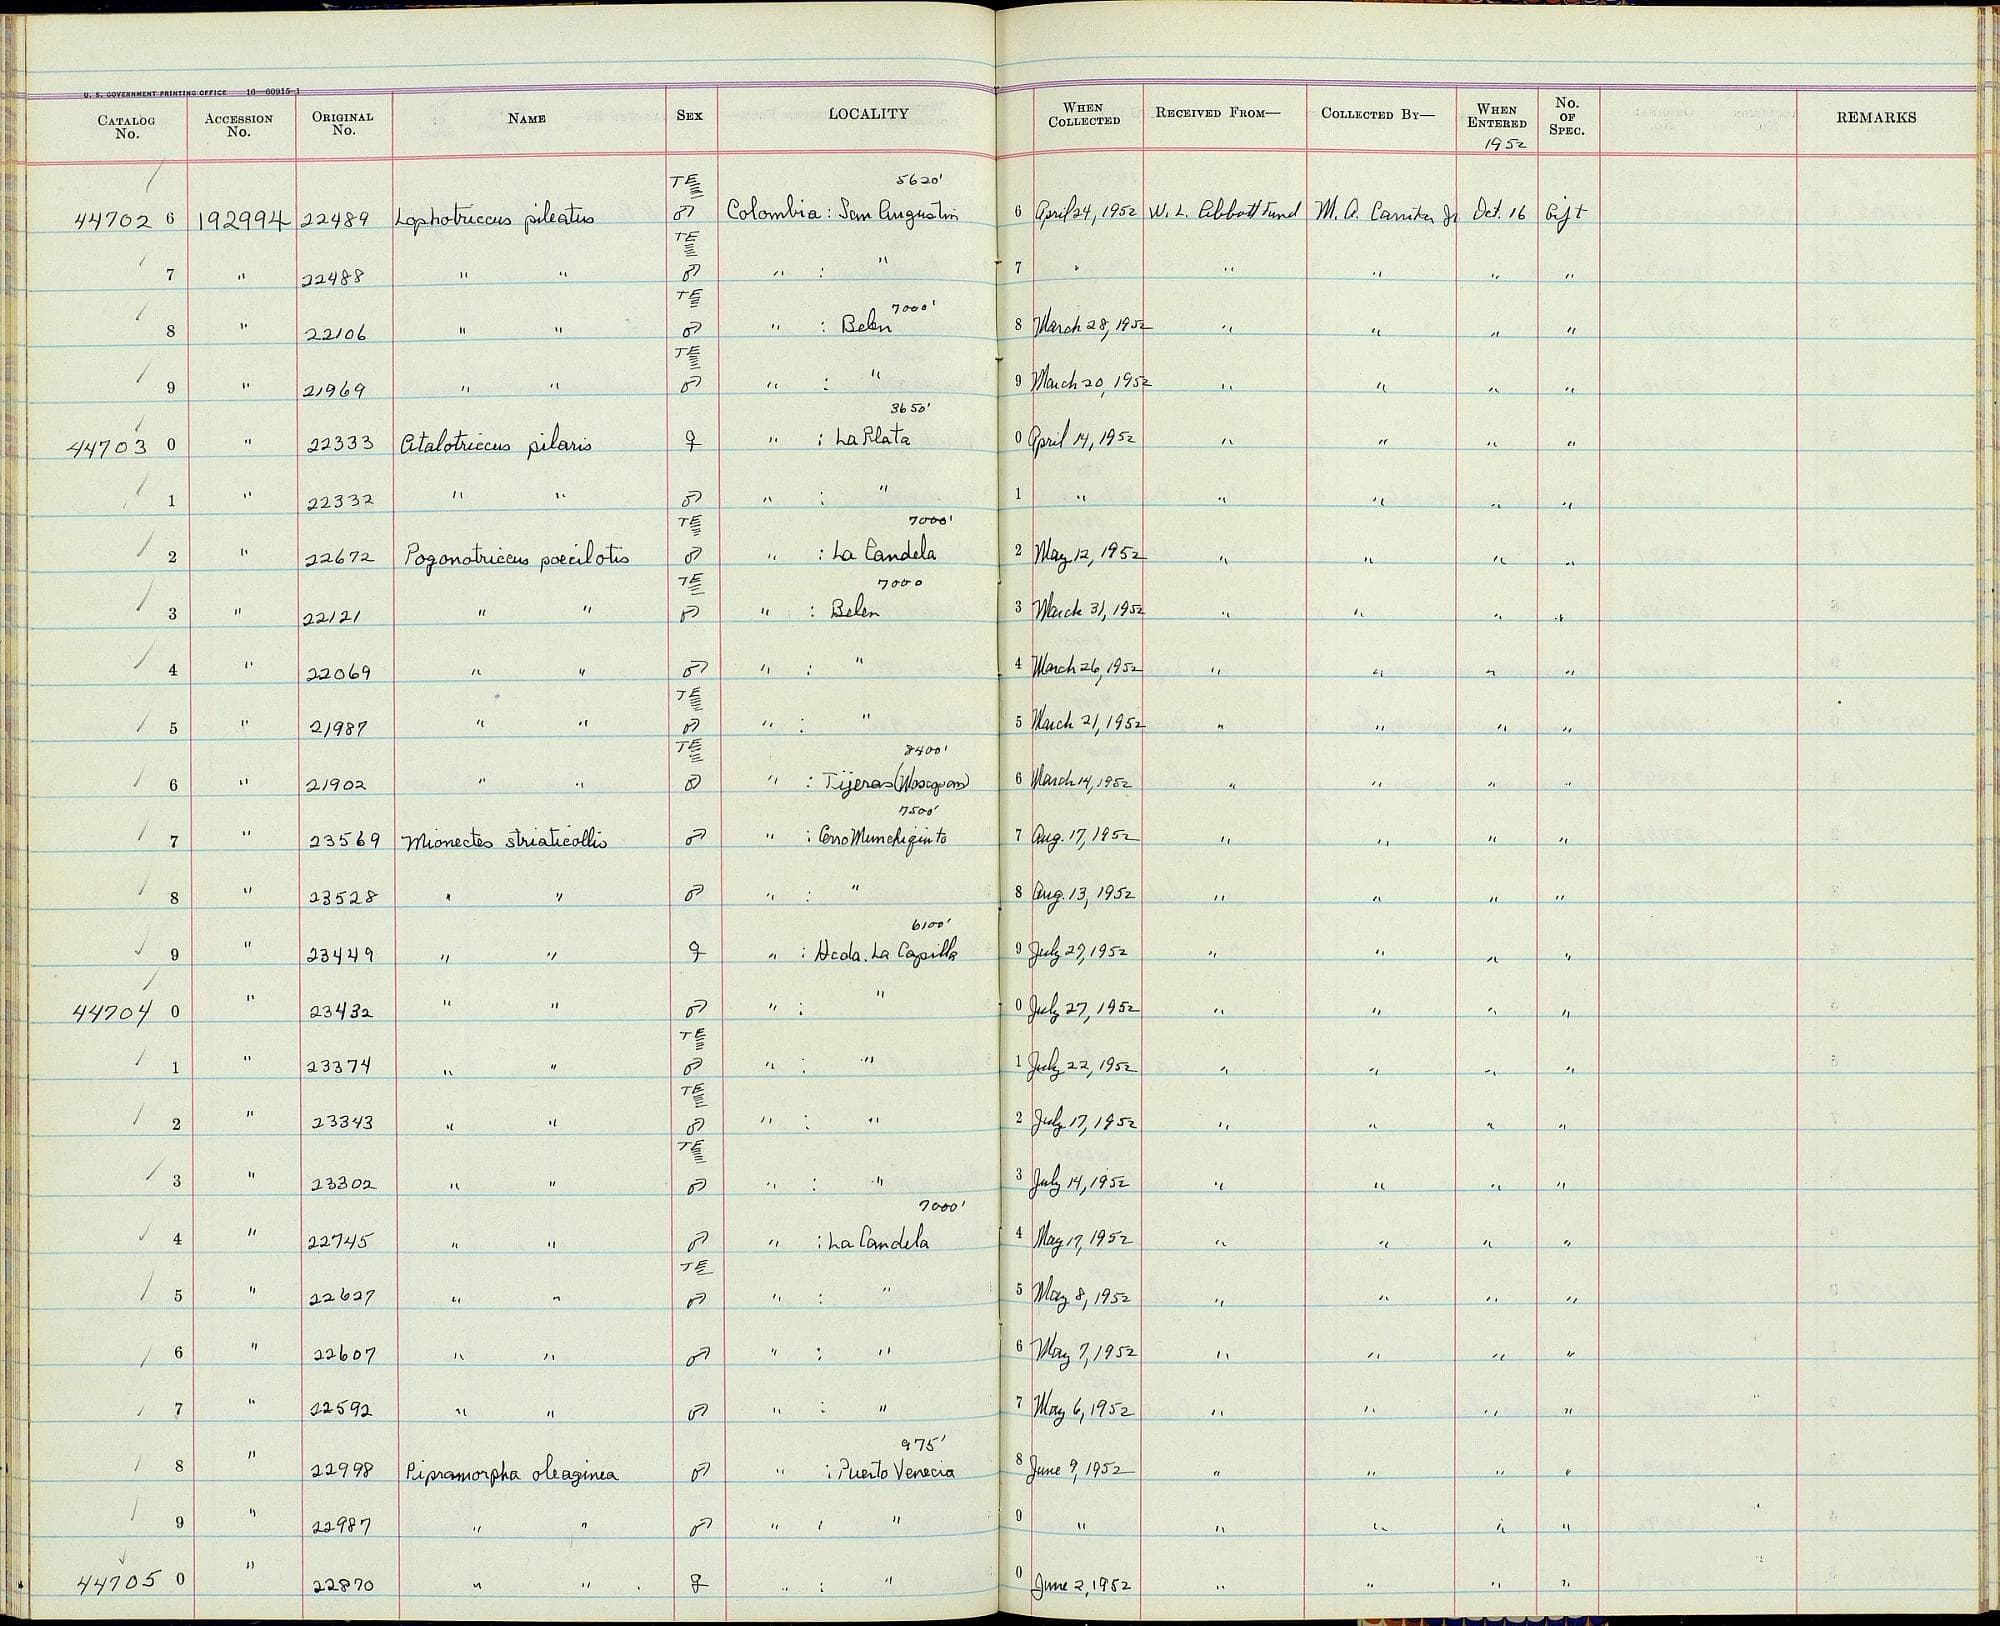 U. S. GOVERNMENT PRINTING OFFICE 16—60915-1
CATALOG No. ACCESSION No. ORIGINAL No. NAME SEX LOCALITY WHEN COLLECTED RECEIVED FROM— COLLECTED BY— WHEN ENTERED 1952 NO. OF SPEC. REMARKS
TE 5620'
44702 6 192994 22489 Lophotriccus pileatus ♂ Colombia: San Augustin 6 April 24, 1952 W. L. Abbott Fund M. A. Carriker Jr. Oct. 16 Gift
TE
7 " 22488 " " ♂ " : " 7 " " " " "
TE 7000'
8 " 22106 " " ♂ " : Belen 8 March 28, 1952 " " " "
TE
9 " 21969 " " ♂ " : " 9 March 20, 1952 " " " "
3650'
44703 0 " 22333 Atalotriccus pilaris ♀ " : La Plata 0 April 14, 1952 " " " "
1 " 22332 " " ♂ " : " 1 " " " " "
TE 7000'
2 " 22672 Pogonotriccus poecilotis ♂ " : La Candela 2 May 12, 1952 " " " "
TE 7000
3 " 22121 " " ♂ " : Belen 3 March 31, 1952 " " " "
4 " 22069 " " ♂ " : " 4 March 26, 1952 " " " "
TE
5 " 21987 " " ♂ " : " 5 March 21, 1952 " " " "
TE 8400'
6 " 21902 " " ♂ " : Tijeras (Moscopan) 6 March 14, 1952 " " " "
7500'
7 " 23569 Mionectes striaticollis ♂ " : Cerro Munchiquito 7 Aug. 17, 1952 " " " "
8 " 23528 " " ♂ " : " 8 Aug. 13, 1952 " " " "
6100'
9 " 23449 " " ♀ " : Hcda. La Capilla 9 July 29, 1952 " " " "
44704 0 " 23432 " " ♂ " : " 0 July 27, 1952 " " " "
TE
1 " 23374 " " ♂ " : " 1 July 22, 1952 " " " "
TE
2 " 23343 " " ♂ " : " 2 July 17, 1952 " " " "
TE
3 " 23302 " " ♂ " : " 3 July 14, 1952 " " " "
7000'
4 " 22745 " " ♂ " : La Candela 4 May 17, 1952 " " " "
TE
5 " 22627 " " ♂ " : " 5 May 8, 1952 " " " "
6 " 22607 " " ♂ " : " 6 May 7, 1952 " " " "
7 " 22592 " " ♂ " : " 7 May 6, 1952 " " " "
975'
8 " 22998 Pipramorpha oleaginea ♂ " : Puerto Venecia 8 June 9, 1952 " " " "
9 " 22987 " " ♂ " : " 9 " " " " "
44705 0 " 22870 " " ♀ " : " 0 June 2, 1952 " " " "